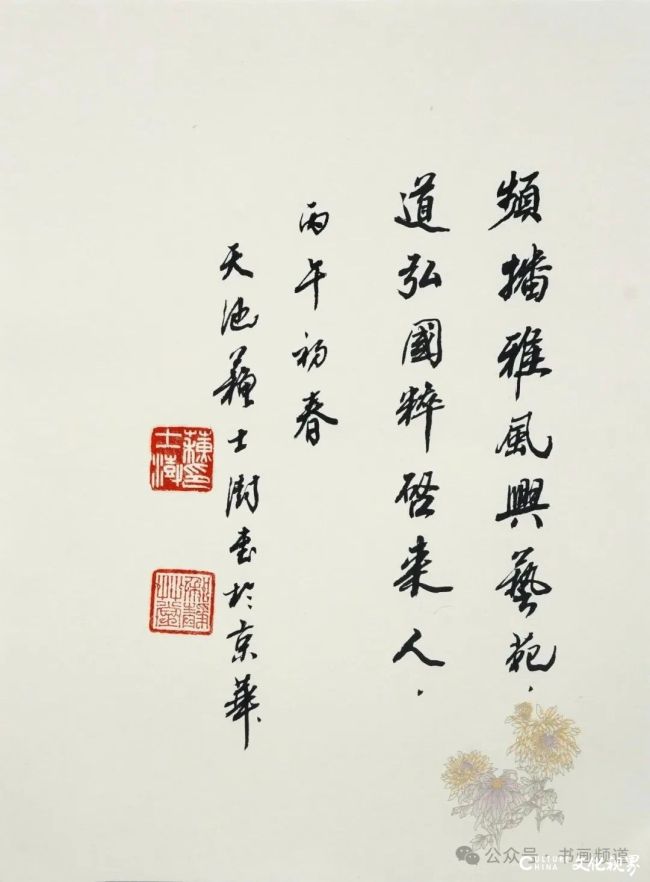 頻播雅風興藝苑．
道弘國粹啓来人．
丙午初春
天池蘇士澍書於京華
蘇士澍印
公众号·书画频道
CULTURE CHINA 文化视界